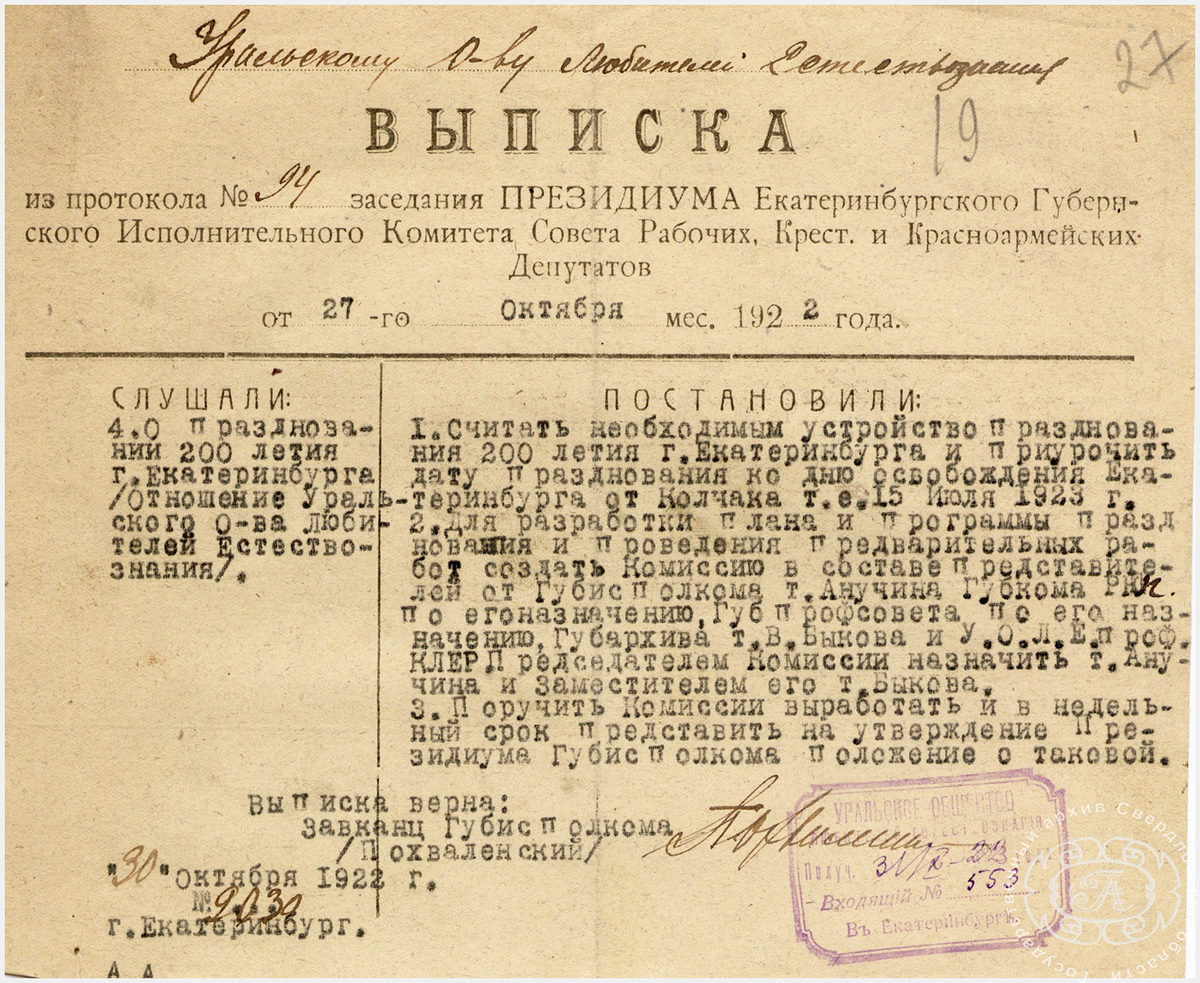 Уральскому О-ву Любителей Естествознания
27
19
ВЫПИСКА
из протокола № 94 заседания ПРЕЗИДИУМА Екатеринбургского Губерн-
ского Исполнительного Комитета Совета Рабочих, Крест. и Красноармейских
Депутатов
от 27 -го Октября мес. 1922 года.
СЛУШАЛИ:
4.О празднова-
нии 200 летия
г.Екатеринбурга
/Отношение Ураль-
ского О-ва Люби-
телей Естество-
знания/.
ПОСТАНОВИЛИ:
1.Считать необходимым устройство празднова-
ния 200 летия г.Екатеринбурга и приурочить
дату празднования ко дню освобождения Ека-
теринбурга от Колчака т.е.15 Июля 1923 г.
2.Для разработки плана и программы празд
нования и проведения предварительных ра-
бот создать Комиссию в составе представите-
лей от Губисполкома т.Анучина Губкома
по егоназначению,Губпрофсовета по его наз-
начению,Губархива т.В.Быкова и У.О.Л.Е.проф.
КЛЕР.Председателем Комиссии назначить т.Ану-
чина и Заместителем его т.Быкова.
3.Поручить Комиссии выработать и в недель-
ный срок представить на утверждение Пре-
зидиума Губисполкома положение о таковой.
Выписка верна:
Завканц Губисполкома
/Похваленский/
"30"Октября 1922 г.
№ 2030
г.Екатеринбург.
А А
УРАЛЬСКОЕ ОБЩЕСТВО
Получ. 31/X-22
Входящiй № 553
Въ Екатеринбургѣ
Государственный архив Свердловской области